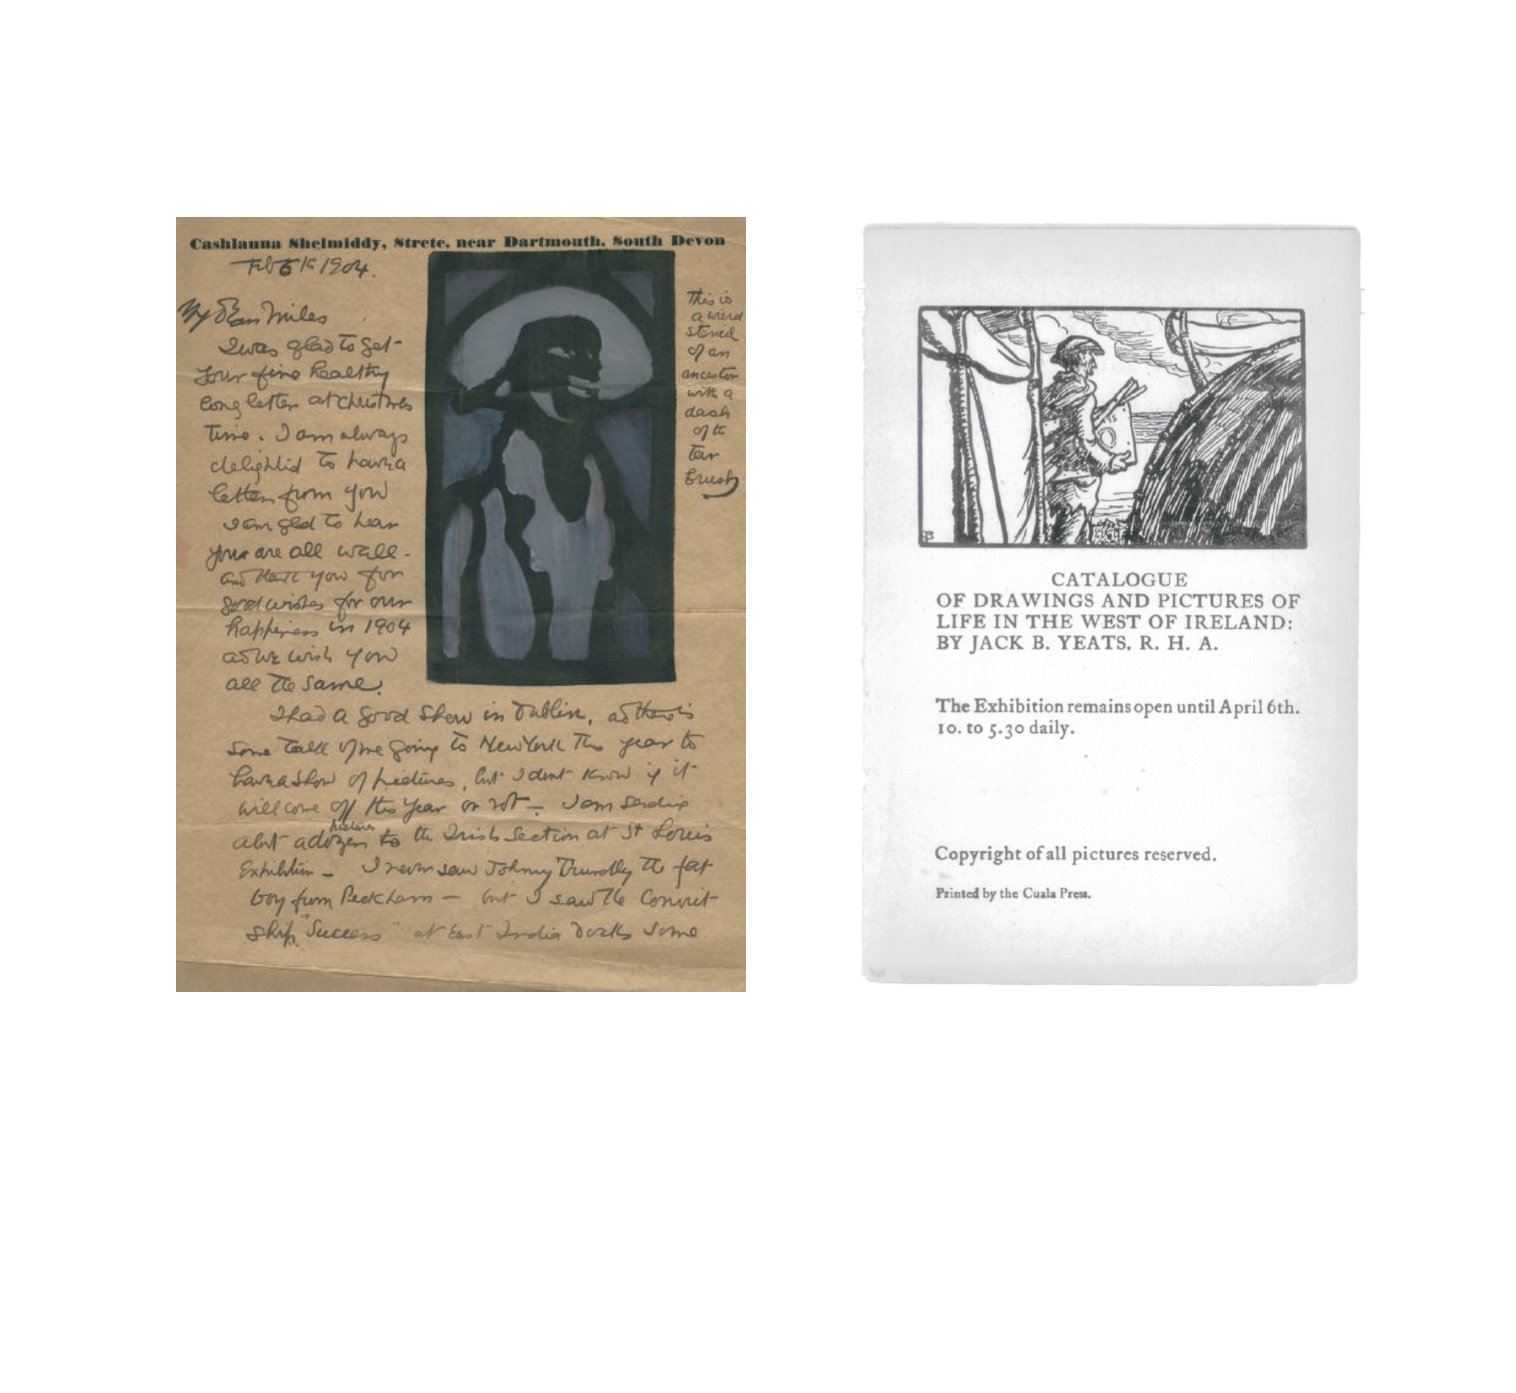 Cashlauna Shelmiddy, Strete, near Dartmouth, South Devon
1904.
My Dear Miles
I was glad to get
your fine healthy
long letter at christmas
time. I am always
delighted to have a
letter from you
I am glad to hear
you are all well.
and thank you for
good wishes for our
happiness in 1904
as we wish you
all the same.
This is
a weird
stencil
of an
ancestor
with a
dash
of the
Tar
Brush
I had a good show in Dublin, as there is
some talk of me going to New York this year to
have a show of pictures, but I dont know if it
will come off this year or not — I am sending
abt a dozen pictures to the Irish Section at St Louis
Exhibition — I never saw Johnny Trundly the fat
boy from Peckham — but I saw the Convict
ship "Success" at East India Docks some
CATALOGUE
OF DRAWINGS AND PICTURES OF
LIFE IN THE WEST OF IRELAND:
BY JACK B. YEATS. R. H. A.
The Exhibition remains open until April 6th.
10. to 5.30 daily.
Copyright of all pictures reserved.
Printed by the Cuala Press.